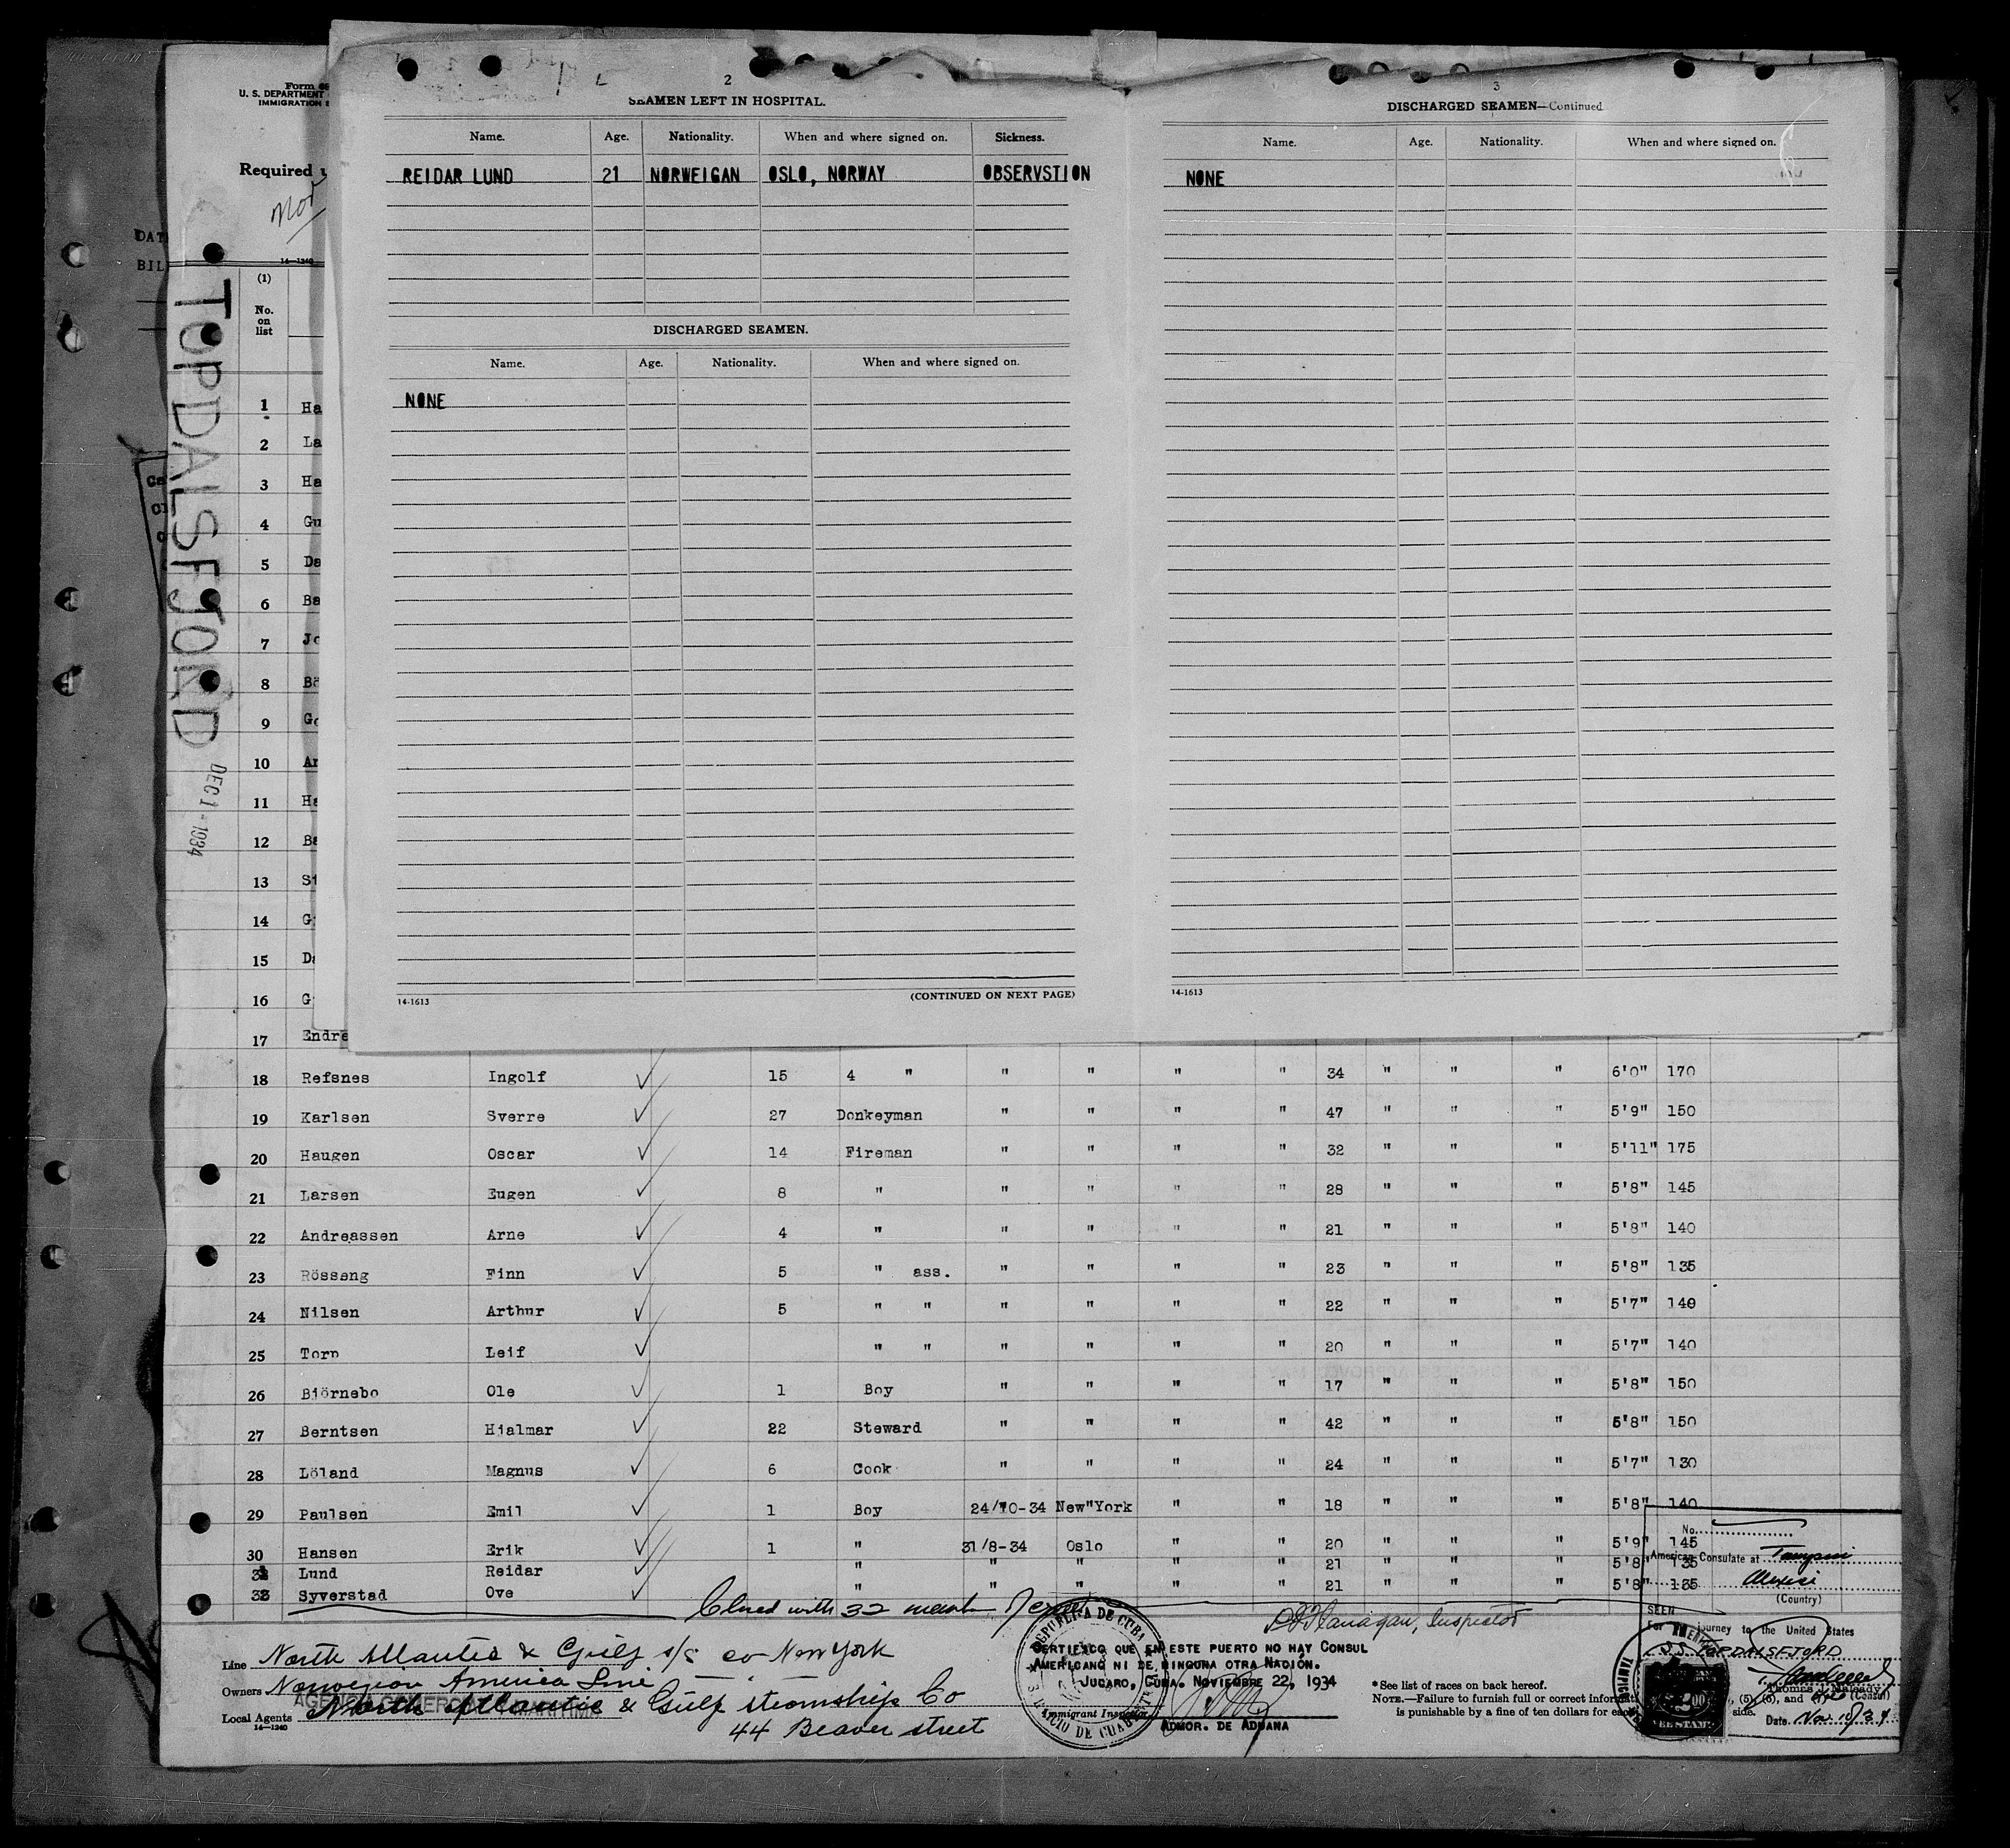 Form
U. S. DEPARTMENT
IMMIGRATION
Required
Nor
DAT
BIL
14—1240
(1)
No.
on
list
TOPDALSFJORD
DEC 1 - 1934
2
SEAMEN LEFT IN HOSPITAL.
Name. Age. Nationality. When and where signed on. Sickness.
REIDAR LUND 21 NORWEIGAN OSLO, NORWAY OBSERVSTION
DISCHARGED SEAMEN.
Name. Age. Nationality. When and where signed on.
NONE
14-1613 (CONTINUED ON NEXT PAGE)
3
DISCHARGED SEAMEN—Continued
Name. Age. Nationality. When and where signed on.
NONE
14-1613
1 Ha
2 La
3 Ha
4 Gu
5 Da
6 Ba
7 Jo
8 Bö
9 Go
10 An
11 Ha
12 Ba
13 St
14 G
15 Da
16 G
17 Endre
18 Refsnes Ingolf ✓ 15 4 " " " " " 34 " " " 6'0" 170
19 Karlsen Sverre ✓ 27 Donkeyman " " " " 47 " " " 5'9" 150
20 Haugen Oscar ✓ 14 Fireman " " " " 32 " " " 5'11" 175
21 Larsen Eugen ✓ 8 " " " " " 28 " " " 5'8" 145
22 Andreassen Arne ✓ 4 " " " " " 21 " " " 5'8" 140
23 Rösseng Finn ✓ 5 " ass. " " " " 23 " " " 5'8" 135
24 Nilsen Arthur ✓ 5 " " " " " " 22 " " " 5'7" 140
25 Torp Leif ✓ " " " " " " 20 " " " 5'7" 140
26 Björnebo Ole ✓ 1 Boy " " " " 17 " " " 5'8" 150
27 Berntsen Hjalmar ✓ 22 Steward " " " " 42 " " " 5'8" 150
28 Löland Magnus ✓ 6 Cook " " " " 24 " " " 5'7" 130
29 Paulsen Emil ✓ 1 Boy 24/10-34 New"York " " 18 " " " 5'8" 140
30 Hansen Erik ✓ 1 " 31/8-34 Oslo " " 20 " " " 5'9" 145
31 Lund Reidar ✓ " " " " " 21 " " " 5'8" 135
32 Syverstad Ove ✓ " " " " " 21 " " " 5'8" 135
Closed with 32
Flanagan, Inspector
Line North Atlantic & Gulf s/s co New York
Owners Norwegian America Line
Local Agents North Atlantic & Gulf steamship Co
14—1240
44 Beaver street
REPUBLICA DE CUBA
CERTIFICO QUE EN ESTE PUERTO NO HAY CONSUL
AMERICANO NI DE NINGUNA OTRA NACIÓN.
JUCARO, CUBA. NOVIEMBRE 22, 1934
Immigrant Inspector
ADMOR. DE ADUANA
*See list of races on back hereof.
NOTE.—Failure to furnish full or correct , (5), (6), and
is punishable by a fine of ten dollars for side.
No.
American Consulate at Tampico
Mexico
(Country)
SEEN
For journey to the United States
S.S. TOPDALSFJORD
Thomas J. Maleady
(Consul)
Date Nov 10/34